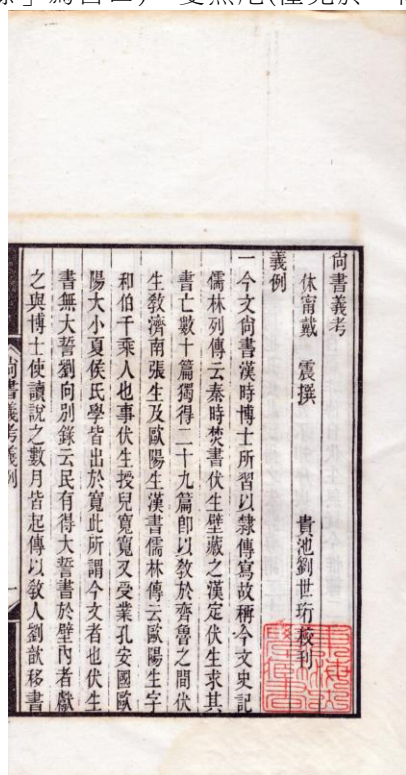 尙書義考
休甯戴 震撰 貴池劉世珩校刊
義例
一今文尙書漢時博士所習以隸傳寫故稱今文史記
儒林列傳云秦時焚書伏生壁藏之漢定伏生求其
書亡數十篇獨得二十九篇卽以敎於齊魯之間伏
生敎濟南張生及歐陽生漢書儒林傳云歐陽生字
和伯千乘人也事伏生授兒寬寬又受業孔安國歐
陽大小夏侯氏學皆出於寬此所謂今文者也伏生
書無大誓劉向別錄云民有得大誓書於壁內者獻
之與博士使讀說之數月皆起傳以敎人劉歆移書
尙書義考義例 一